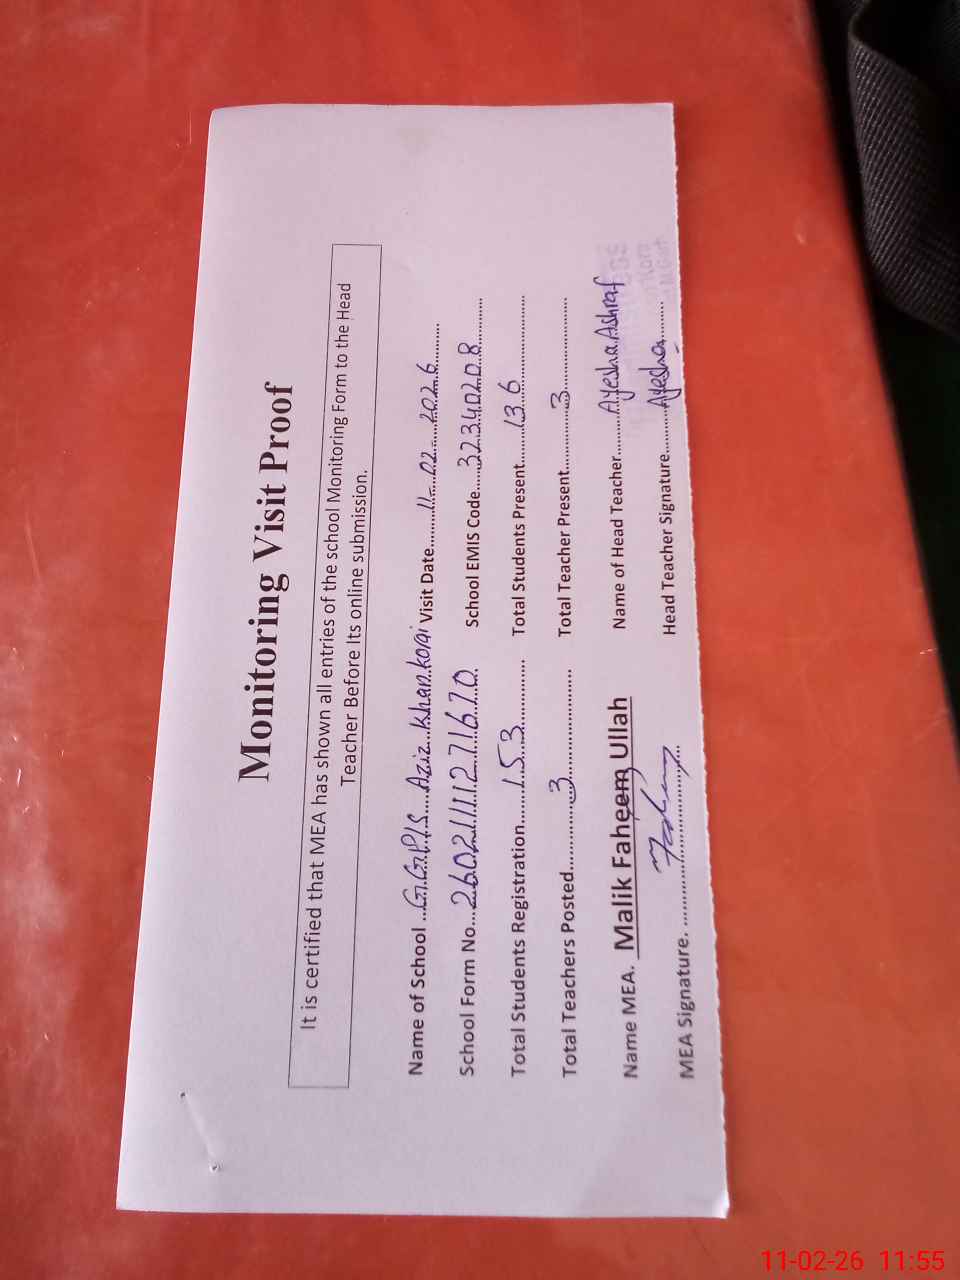 Monitoring Visit Proof
It is certified that MEA has shown all entries of the school Monitoring Form to the Head
Teacher Before Its online submission.
Name of School ..G.G.P/S....Aziz..Khan.Korai Visit Date..........11-..02-...2026......
School Form No...2602111271670 School EMIS Code.....32340208..........
Total Students Registration........153.............. Total Students Present......136..................
Total Teachers Posted.............3..................... Total Teacher Present.............3....................
Name MEA. Malik Faheem Ullah Name of Head Teacher.......Ayesha Ashraf
MEA Signature. .......................................... Head Teacher Signature........Ayesha..........
11-02-26 11:55